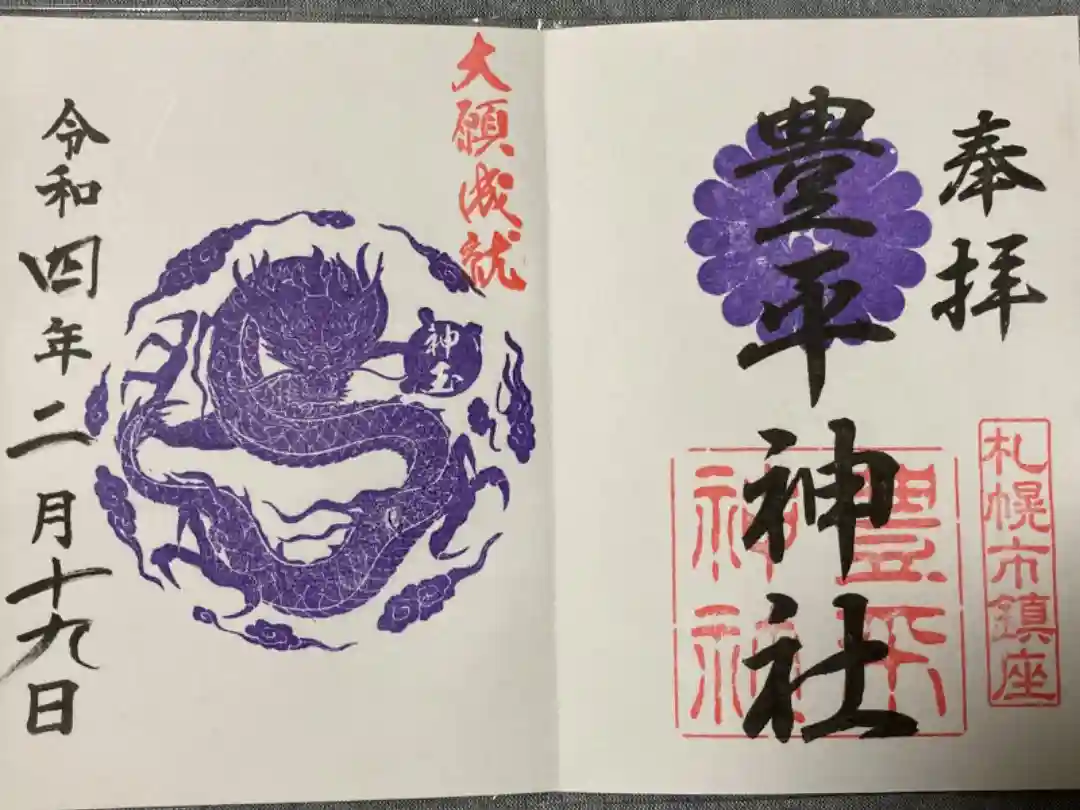 奉拝
豊平神社
札幌市鎮座
豊平
神社
大願成就
神玉
令和四年二月十九日